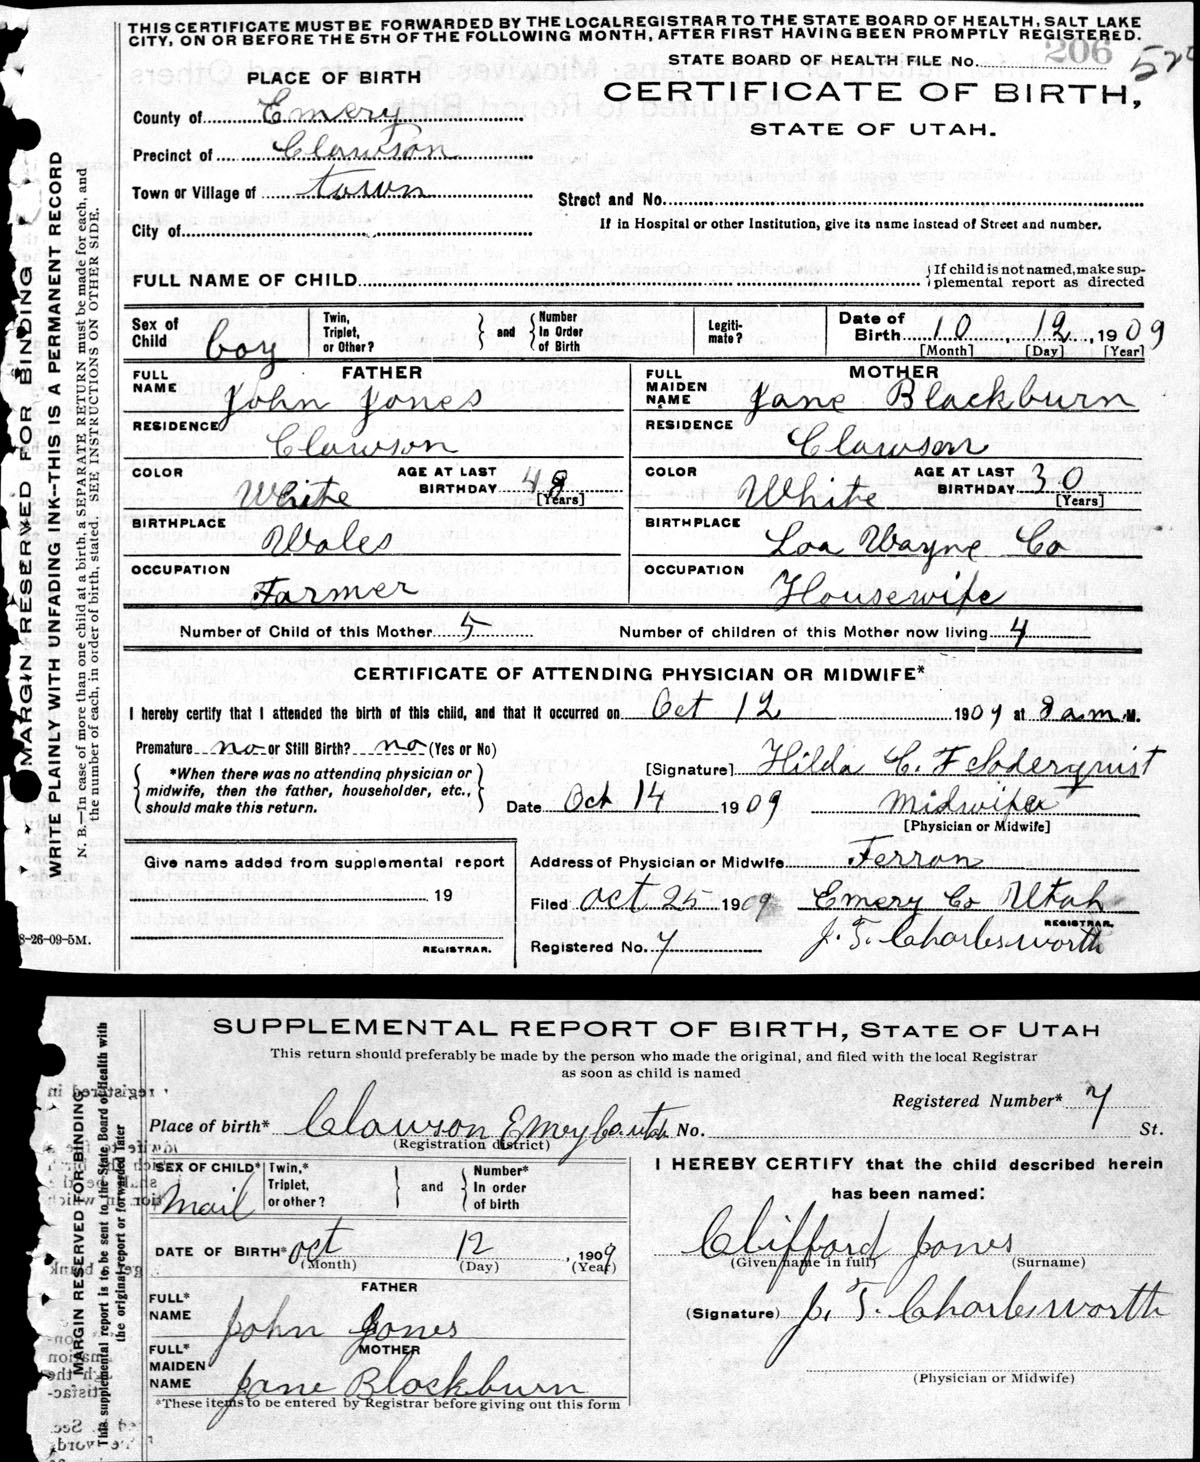 THIS CERTIFICATE MUST BE FORWARDED BY THE LOCAL REGISTRAR TO THE STATE BOARD OF HEALTH, SALT LAKE
CITY, ON OR BEFORE THE 5TH OF THE FOLLOWING MONTH, AFTER FIRST HAVING BEEN PROMPTLY REGISTERED.
STATE BOARD OF HEALTH FILE No. 206
CERTIFICATE OF BIRTH,
STATE OF UTAH.
PLACE OF BIRTH
County of Emery
Precinct of Clawson
Town or Village of town
City of
Street and No.
If in Hospital or other Institution, give its name instead of Street and number.
FULL NAME OF CHILD
{If child is not named, make sup-
plemental report as directed
Sex of Child boy
Twin, Triplet, or Other?
and
Number In Order of Birth
Legiti-mate?
Date of Birth 10, 12, 1909
[Month] [Day] [Year]
FATHER
FULL NAME John Jones
RESIDENCE Clawson
COLOR White AGE AT LAST BIRTHDAY 48 [Years]
BIRTHPLACE Wales
OCCUPATION Farmer
MOTHER
FULL MAIDEN NAME Jane Blackburn
RESIDENCE Clawson
COLOR White AGE AT LAST BIRTHDAY 30 [Years]
BIRTHPLACE Loa Wayne Co
OCCUPATION Housewife
Number of Child of this Mother 5 Number of children of this Mother now living 4
CERTIFICATE OF ATTENDING PHYSICIAN OR MIDWIFE*
I hereby certify that I attended the birth of this child, and that it occurred on Oct 12 1909 at 8 am M.
Premature no or Still Birth? no (Yes or No)
{*When there was no attending physician or
midwife, then the father, householder, etc.,
should make this return.}
[Signature] Hilda C. F Soderquist
Date Oct 14 1909 Midwife
[Physician or Midwife]
Give name added from supplemental report
19
REGISTRAR.
Address of Physician or Midwife Ferron
Filed Oct 25 1909 Emery Co Utah
REGISTRAR.
Registered No. 7 J. T. Charlesworth
8-26-09-5M.
MARGIN RESERVED FOR BINDING
WRITE PLAINLY WITH UNFADING INK--THIS IS A PERMANENT RECORD
N. B.—In case of more than one child at a birth, a SEPARATE RETURN must be made for each, and
the number of each, in order of birth, stated. SEE INSTRUCTIONS ON OTHER SIDE.
SUPPLEMENTAL REPORT OF BIRTH, STATE OF UTAH
This return should preferably be made by the person who made the original, and filed with the local Registrar
as soon as child is named
Registered Number* 7
Place of birth* Clawson Emery Co. utah No. St.
(Registration district)
SEX OF CHILD* Mail
Twin,* Triplet, or other?
and
Number* In order of birth
DATE OF BIRTH* Oct 12, 1909
(Month) (Day) (Year)
FATHER
FULL* NAME John Jones
MOTHER
FULL* MAIDEN NAME Jane Blackburn
*These items to be entered by Registrar before giving out this form
I HEREBY CERTIFY that the child described herein
has been named:
Clifford Jones
(Given name in full) (Surname)
(Signature) J. T. Charlesworth
(Physician or Midwife)
MARGIN RESERVED FOR BINDING
This supplemental report is to be sent to the State Board of Health with
the original report or forwarded later